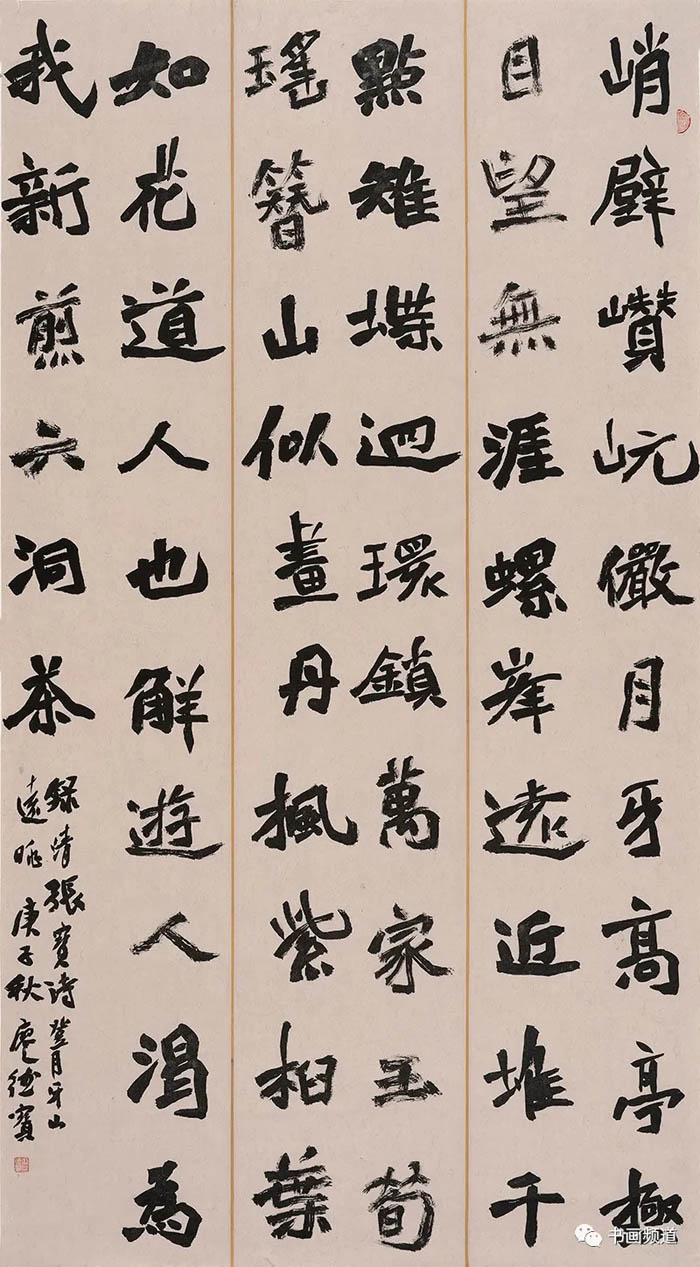 峭壁巑岏儼月牙高亭極
目望無涯螺峯遠近堆千
點雉堞迴環鎖萬家玉荀
瑤簪山似畫丹楓紫桕葉
如花道人也解遊人渴為
我新煎六洞茶
錄清張寶詩登月牙山
遠眺庚子秋廖德
书画频道